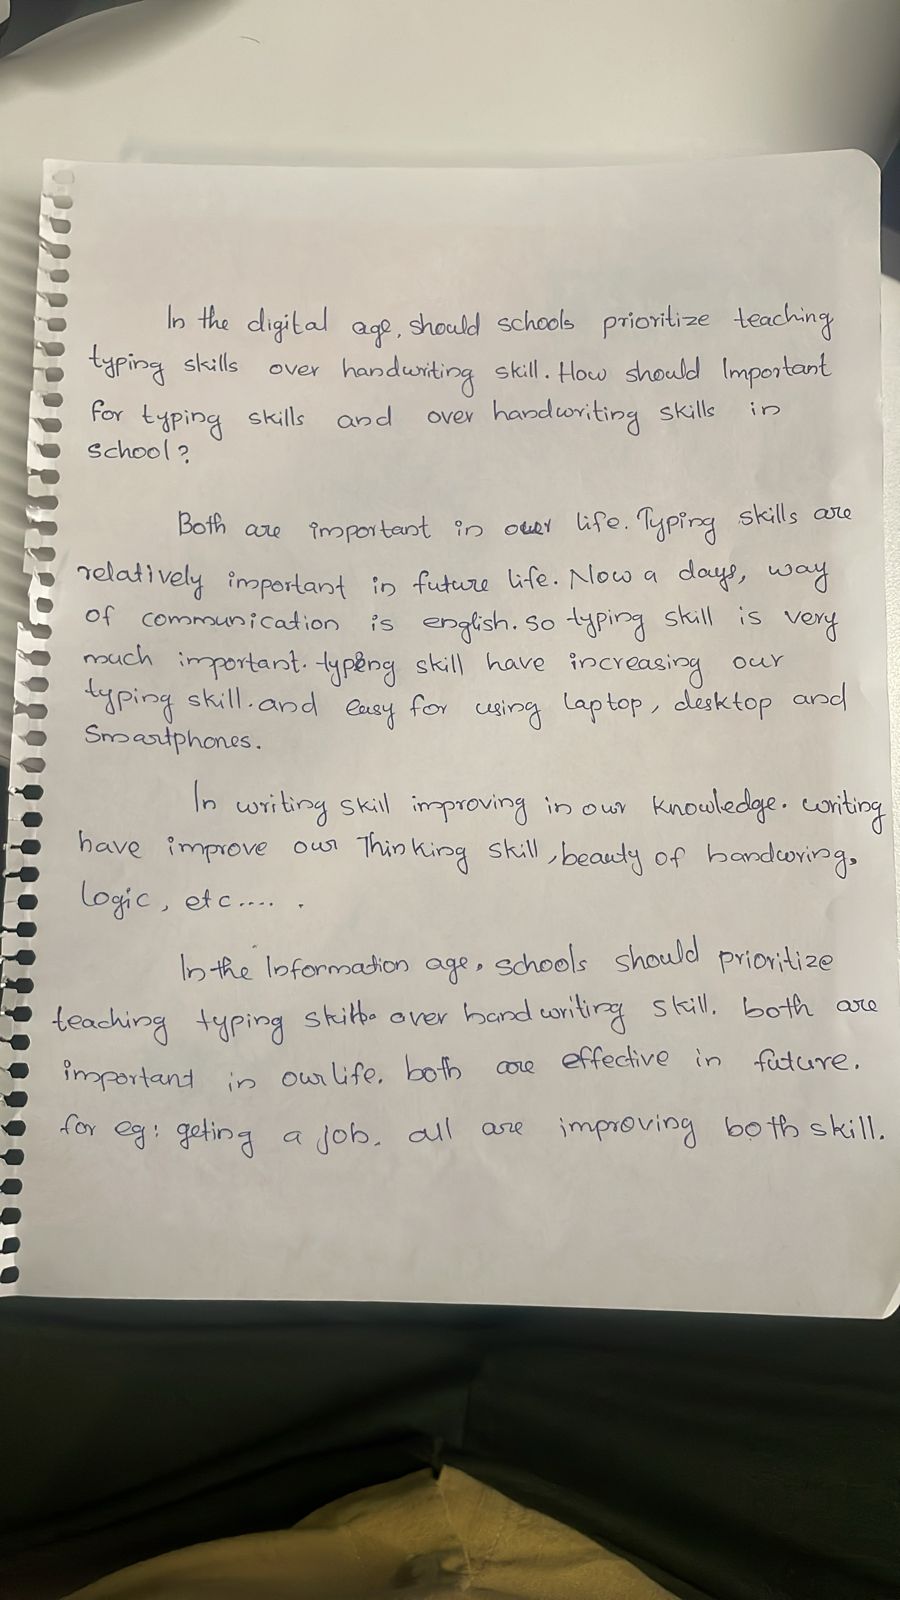 In the digital age, should schools prioritize teaching
typing skills over handwriting skill. How should Important
for typing skills and over handwriting skills in
school?
Both are important in our life. Typing skills are
relatively important in future life. Now a days, way
of communication is english. so typing skill is very
much important. typing skill have increasing our
typing skill. and easy for using laptop, desktop and
Smartphones.
In writing skill improving in our knowledge. writing
have improve our Thinking skill, beauty of handwring,
logic, etc.... .
In the Information age, schools should prioritize
teaching typing skills over handwriting skill. both are
important in our life. both are effective in future.
for eg: geting a job. all are improving both skill.